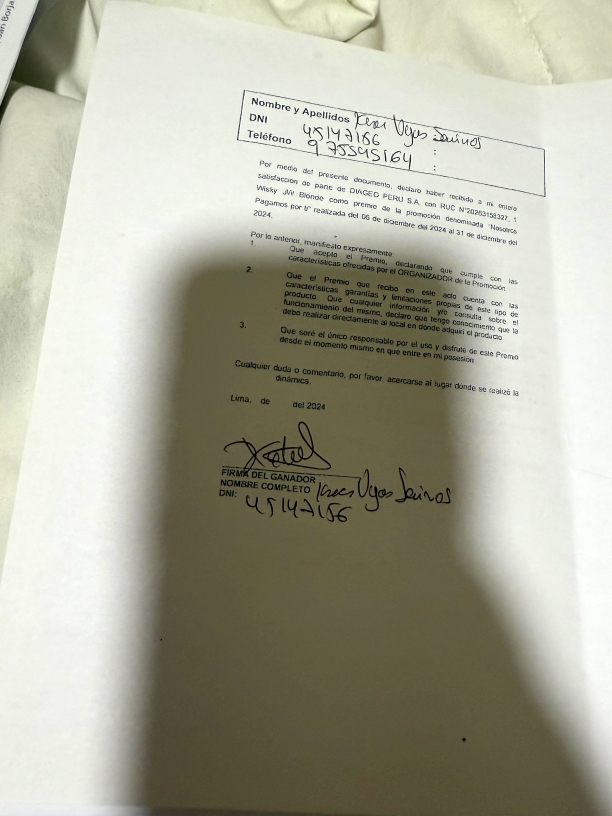 San Borja
Nombre y Apellidos
DNI 45147156 :
Teléfono 975545164 :
Por medio del presente documento, declaro haber recibido a mi entera
satisfacción de parte de DIAGEO PERU S.A. con RUC N°20263158327, 1
Wisky JW Blonde como premio de la promoción denominada "Nosotros
Pagamos por ti" realizada del 06 de diciembre del 2024 al 31 de diciembre del
2024.
Por lo anterior, manifiesto expresamente
1. Que acepto el Premio, declarando que cumple con las
características ofrecidas por el ORGANIZADOR de la Promoción.
2. Que el Premio que recibo en este acto cuenta con las
características garantías y limitaciones propias de este tipo de
producto. Que cualquier información y/o consulta sobre el
funcionamiento del mismo, declaro que tengo conocimiento que la
debo realizar directamente al local en donde adquirí el producto.
3. Que seré el único responsable por el uso y disfrute de este Premio
desde el momento mismo en que entre en mi posesión
Cualquier duda o comentario, por favor, acercarse al lugar donde se realizó la
dinámica.
Lima, de del 2024
FIRMA DEL GANADOR
NOMBRE COMPLETO
DNI: 45147156